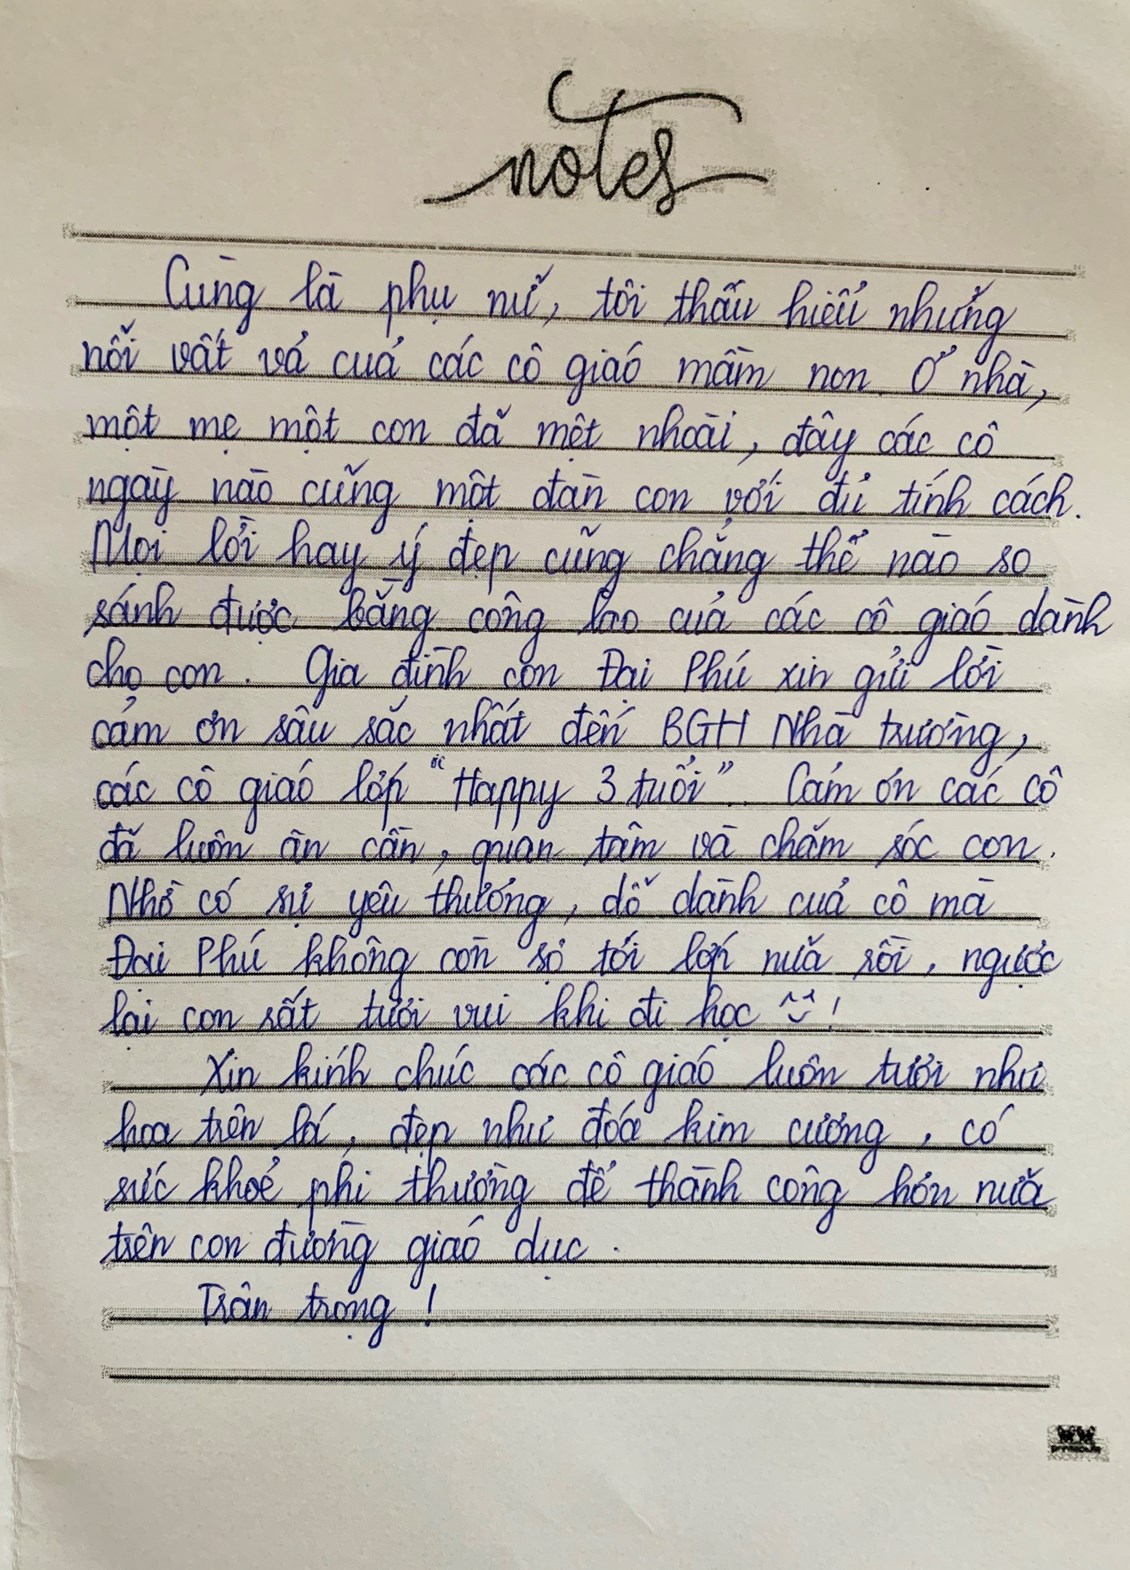 notes
Cùng là phụ nữ, tôi thấu hiểu những
nỗi vất vả của các cô giáo mầm non. Ở nhà,
một mẹ một con đã mệt nhoài, đây các cô
ngày nào cũng một đàn con với đủ tính cách.
Mọi lời hay ý đẹp cũng chẳng thể nào so
sánh được bằng công lao của các cô giáo dành
cho con. Gia đình con Đại Phú xin gửi lời
cảm ơn sâu sắc nhất đến BGH Nhà trường,
các cô giáo lớp "Happy 3 tuổi". Cảm ơn các cô
đã luôn ân cần, quan tâm và chăm sóc con.
Nhờ có sự yêu thương, dỗ dành của cô mà
Đại Phú không còn sợ tới lớp nữa rồi, ngược
lại con rất tươi vui khi đi học !
Xin kính chúc các cô giáo luôn tươi như
hoa trên lá, đẹp như đóa kim cương, có
sức khoẻ phi thường để thành công hơn nữa
trên con đường giáo dục.
Trân trọng !